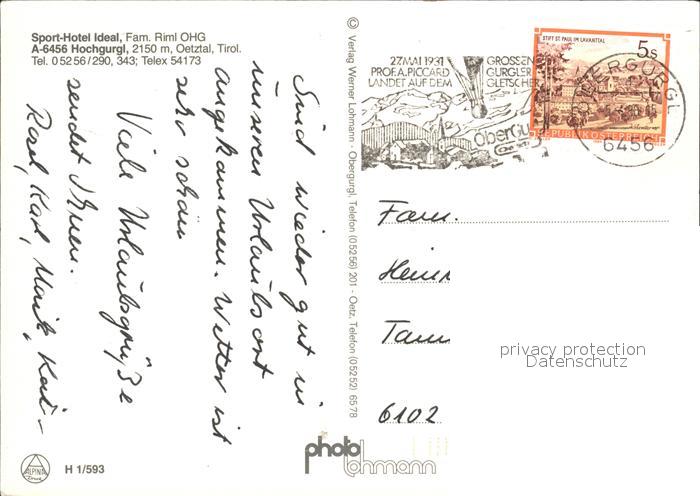 Sport-Hotel Ideal, Fam. Riml OHG
A-6456 Hochgurgl, 2150 m, Oetztal, Tirol.
Tel. 05256/290, 343; Telex 54173
Sind wieder gut in
unseren Urlaubsort
angekommen. Wetter ist
sehr schön
Viele Urlaubsgrüße
sendet Ihnen.
Karl,
© Verlag Werner Lohmann - Obergurgl, Telefon (05256) 201 - Oetz, Telefon (05252) 6578
27.MAI 1931
PROF. A. PICCARD
LANDET AUF DEM
GROSSEN
GURGLER
GLETSCHE
oberGu
STIFT ST. PAUL IM LAVANTTAL
5S
REPUBLIK ÖSTERREICH
OBERGURGL
6456
Fam.
Heinr
Tam
6102
privacy protection
Datenschutz
photo
lohmann
ALPINA
H 1/593